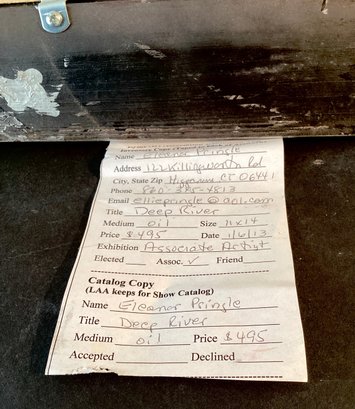 Name Eleanor Pringle
Address 122 Killingworth Rd
City, State Zip Higganum CT 06441
Phone 860-345-4813
Email elliepringle@aol.com
Title Deep River
Medium oil Size 11x14
Price $495 Date 1/6/13
Exhibition Associate Artist
Elected Assoc. ✓ Friend
Catalog Copy
(LAA keeps for Show Catalog)
Name Eleanor Pringle
Title Deep River
Medium oil Price $495
Accepted Declined